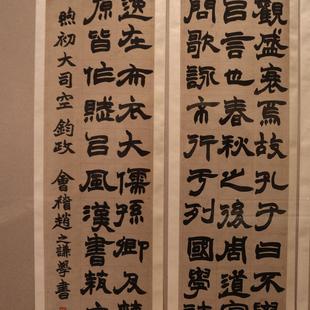 觀盛衰焉故孔子曰不學
㠯言也春秋之後周道
問歌詠不行于列國學詩
逸在布衣大儒孫卿及楚
原皆作賦㠯風漢書蓺文
煦初大司空 鈞政 會稽趙之謙學書